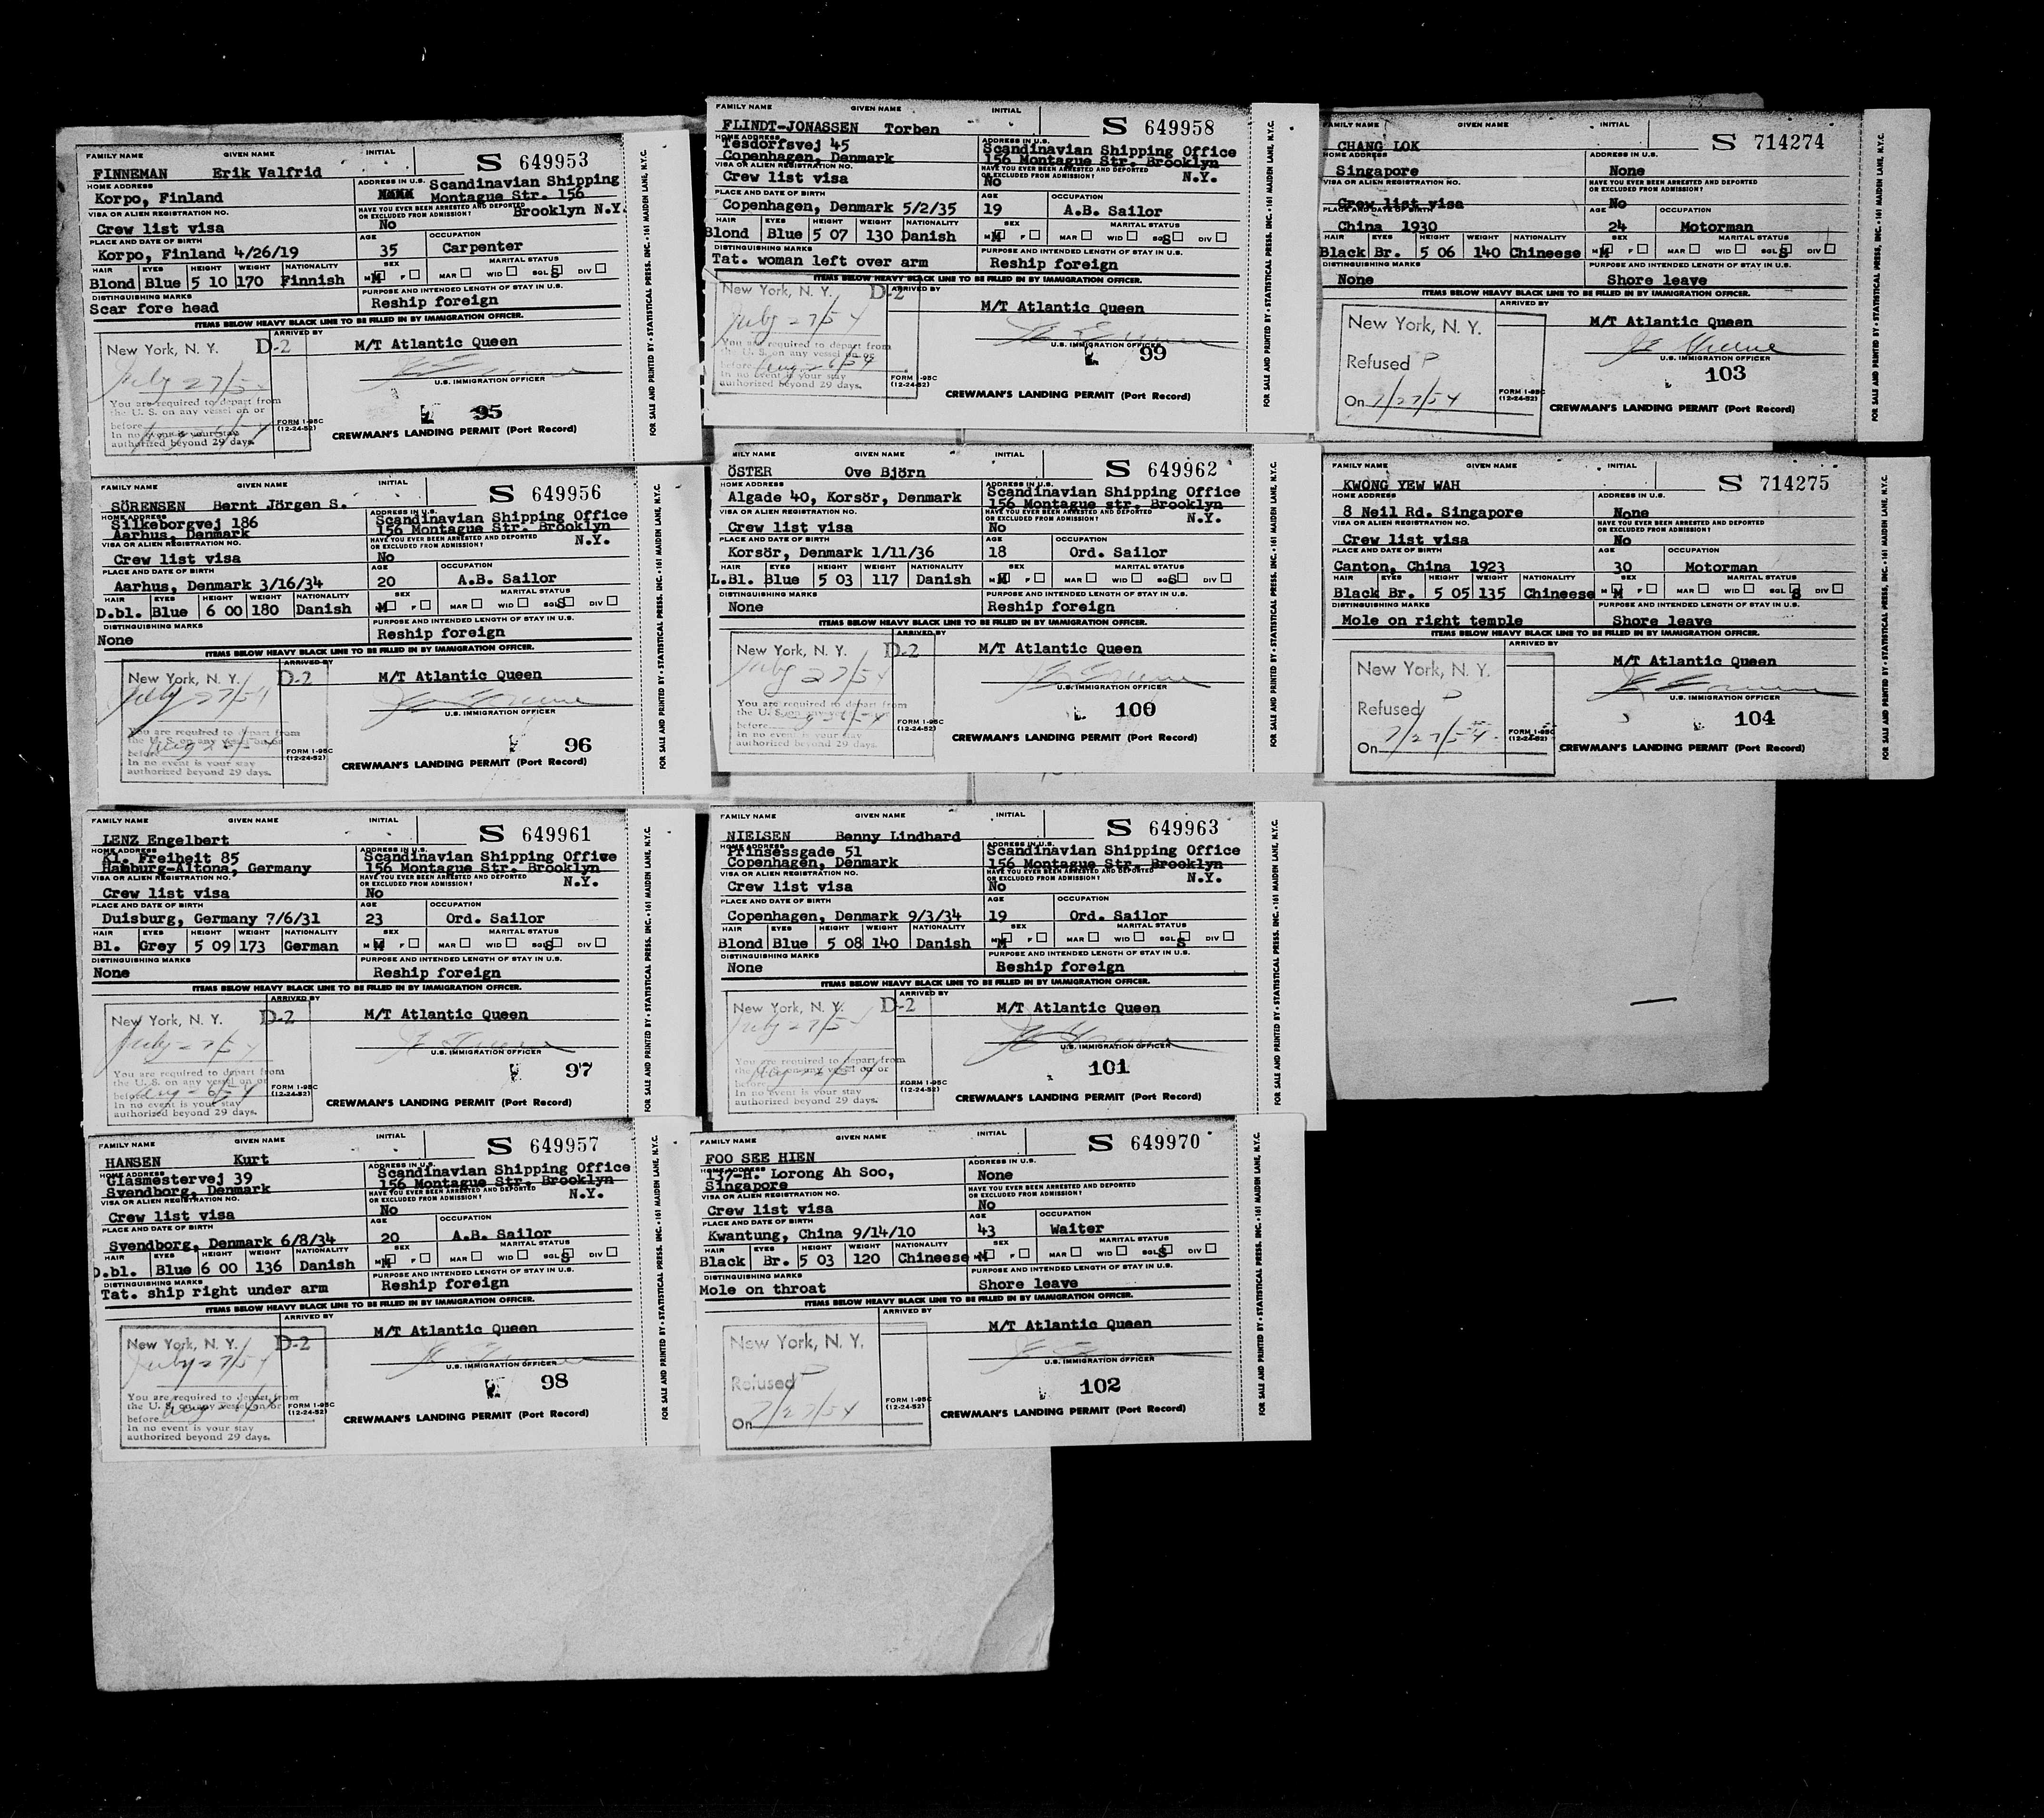 FAMILY NAME GIVEN NAME INITIAL
S 649953
FINNEMAN Erik Valfrid
HOME ADDRESS ADDRESS IN U.S.
Korpo, Finland Scandinavian Shipping
Montague Str. 156
Brooklyn N.Y.
VISA OR ALIEN REGISTRATION NO. HAVE YOU EVER BEEN ARRESTED AND DEPORTED
OR EXCLUDED FROM ADMISSION?
Crew list visa No
PLACE AND DATE OF BIRTH AGE OCCUPATION
Korpo, Finland 4/26/19 35 Carpenter
HAIR EYES HEIGHT WEIGHT NATIONALITY SEX MARITAL STATUS
Blond Blue 5 10 170 Finnish M F MAR WID SGL S DIV
DISTINGUISHING MARKS PURPOSE AND INTENDED LENGTH OF STAY IN U.S.
Scar fore head Reship foreign
ITEMS BELOW HEAVY BLACK LINE TO BE FILLED IN BY IMMIGRATION OFFICER.
ARRIVED BY
New York, N. Y. D-2 M/T Atlantic Queen
July 27/54
U.S. IMMIGRATION OFFICER
You are required to depart from
the U. S. on any vessel on or
before
In no event is your stay
authorized beyond 29 days.
FORM I-95C
(12-24-52)
95
CREWMAN'S LANDING PERMIT (Port Record)
FOR SALE AND PRINTED BY • STATISTICAL PRESS, INC. • 161 MAIDEN LANE, N.Y.C.
FAMILY NAME GIVEN NAME INITIAL
S 649956
SÖRENSEN Bernt Jörgen S.
HOME ADDRESS ADDRESS IN U.S.
Silkeborgvej 186 Scandinavian Shipping Office
Aarhus, Denmark 156 Montague Str. Brooklyn
N.Y.
VISA OR ALIEN REGISTRATION NO. HAVE YOU EVER BEEN ARRESTED AND DEPORTED
OR EXCLUDED FROM ADMISSION?
Crew list visa No
PLACE AND DATE OF BIRTH AGE OCCUPATION
Aarhus, Denmark 3/16/34 20 A.B. Sailor
HAIR EYES HEIGHT WEIGHT NATIONALITY SEX MARITAL STATUS
D.bl. Blue 6 00 180 Danish M F MAR WID SGL S DIV
DISTINGUISHING MARKS PURPOSE AND INTENDED LENGTH OF STAY IN U.S.
None Reship foreign
ITEMS BELOW HEAVY BLACK LINE TO BE FILLED IN BY IMMIGRATION OFFICER.
ARRIVED BY
New York, N. Y. D-2 M/T Atlantic Queen
July 27/54
U.S. IMMIGRATION OFFICER
You are required to depart from
the U. S. on any vessel on or
before
In no event is your stay
authorized beyond 29 days.
FORM I-95C
(12-24-52)
96
CREWMAN'S LANDING PERMIT (Port Record)
FOR SALE AND PRINTED BY • STATISTICAL PRESS, INC. • 161 MAIDEN LANE, N.Y.C.
FAMILY NAME GIVEN NAME INITIAL
S 649961
LENZ Engelbert
HOME ADDRESS ADDRESS IN U.S.
Kl. Freiheit 85 Scandinavian Shipping Office
Hamburg-Altona, Germany 156 Montague Str. Brooklyn
N.Y.
VISA OR ALIEN REGISTRATION NO. HAVE YOU EVER BEEN ARRESTED AND DEPORTED
OR EXCLUDED FROM ADMISSION?
Crew list visa No
PLACE AND DATE OF BIRTH AGE OCCUPATION
Duisburg, Germany 7/6/31 23 Ord. Sailor
HAIR EYES HEIGHT WEIGHT NATIONALITY SEX MARITAL STATUS
Bl. Grey 5 09 173 German M F MAR WID SGL S DIV
DISTINGUISHING MARKS PURPOSE AND INTENDED LENGTH OF STAY IN U.S.
None Reship foreign
ITEMS BELOW HEAVY BLACK LINE TO BE FILLED IN BY IMMIGRATION OFFICER.
ARRIVED BY
New York, N. Y. D-2 M/T Atlantic Queen
July 27/54
U.S. IMMIGRATION OFFICER
You are required to depart from
the U. S. on any vessel on or
before Aug 26/54
In no event is your stay
authorized beyond 29 days.
FORM I-95C
(12-24-52)
97
CREWMAN'S LANDING PERMIT (Port Record)
FOR SALE AND PRINTED BY • STATISTICAL PRESS, INC. • 161 MAIDEN LANE, N.Y.C.
FAMILY NAME GIVEN NAME INITIAL
S 649957
HANSEN Kurt
HOME ADDRESS ADDRESS IN U.S.
Glasmestervej 39 Scandinavian Shipping Office
Svendborg, Denmark 156 Montague Str. Brooklyn
N.Y.
VISA OR ALIEN REGISTRATION NO. HAVE YOU EVER BEEN ARRESTED AND DEPORTED
OR EXCLUDED FROM ADMISSION?
Crew list visa No
PLACE AND DATE OF BIRTH AGE OCCUPATION
Svendborg, Denmark 6/8/34 20 A.B. Sailor
HAIR EYES HEIGHT WEIGHT NATIONALITY SEX MARITAL STATUS
D.bl. Blue 6 00 136 Danish M F MAR WID SGL S DIV
DISTINGUISHING MARKS PURPOSE AND INTENDED LENGTH OF STAY IN U.S.
Tat. ship right under arm Reship foreign
ITEMS BELOW HEAVY BLACK LINE TO BE FILLED IN BY IMMIGRATION OFFICER.
ARRIVED BY
New York, N. Y. D-2 M/T Atlantic Queen
July 27/54
U.S. IMMIGRATION OFFICER
You are required to depart from
the U. S. on any vessel on or
before
In no event is your stay
authorized beyond 29 days.
FORM I-95C
(12-24-52)
98
CREWMAN'S LANDING PERMIT (Port Record)
FOR SALE AND PRINTED BY • STATISTICAL PRESS, INC. • 161 MAIDEN LANE, N.Y.C.
FAMILY NAME GIVEN NAME INITIAL
S 649958
FLINDT-JONASSEN Torben
HOME ADDRESS ADDRESS IN U.S.
Tesdorfsvej 45 Scandinavian Shipping Office
Copenhagen, Denmark 156 Montague Str. Brooklyn
N.Y.
VISA OR ALIEN REGISTRATION NO. HAVE YOU EVER BEEN ARRESTED AND DEPORTED
OR EXCLUDED FROM ADMISSION?
Crew list visa No
PLACE AND DATE OF BIRTH AGE OCCUPATION
Copenhagen, Denmark 5/2/35 19 A.B. Sailor
HAIR EYES HEIGHT WEIGHT NATIONALITY SEX MARITAL STATUS
Blond Blue 5 07 130 Danish M F MAR WID SGL S DIV
DISTINGUISHING MARKS PURPOSE AND INTENDED LENGTH OF STAY IN U.S.
Tat. woman left over arm Reship foreign
ITEMS BELOW HEAVY BLACK LINE TO BE FILLED IN BY IMMIGRATION OFFICER.
ARRIVED BY
New York, N. Y. D-2 M/T Atlantic Queen
July 27/54
U.S. IMMIGRATION OFFICER
You are required to depart from
the U. S. on any vessel on or
before Aug 26/54
In no event is your stay
authorized beyond 29 days.
FORM I-95C
(12-24-52)
99
CREWMAN'S LANDING PERMIT (Port Record)
FOR SALE AND PRINTED BY • STATISTICAL PRESS, INC. • 161 MAIDEN LANE, N.Y.C.
MILY NAME GIVEN NAME INITIAL
S 649962
ÖSTER Ove Björn
HOME ADDRESS ADDRESS IN U.S.
Algade 40, Korsör, Denmark Scandinavian Shipping Office
156 Montague str. Brooklyn
N.Y.
VISA OR ALIEN REGISTRATION NO. HAVE YOU EVER BEEN ARRESTED AND DEPORTED
OR EXCLUDED FROM ADMISSION?
Crew list visa No
PLACE AND DATE OF BIRTH AGE OCCUPATION
Korsör, Denmark 1/11/36 18 Ord. Sailor
HAIR EYES HEIGHT WEIGHT NATIONALITY SEX MARITAL STATUS
L.Bl. Blue 5 03 117 Danish M F MAR WID SGL S DIV
DISTINGUISHING MARKS PURPOSE AND INTENDED LENGTH OF STAY IN U.S.
None Reship foreign
ITEMS BELOW HEAVY BLACK LINE TO BE FILLED IN BY IMMIGRATION OFFICER.
ARRIVED BY
New York, N. Y. D-2 M/T Atlantic Queen
July 27/54
U.S. IMMIGRATION OFFICER
You are required to depart from
the U. S. on any vessel on or
before
In no event is your stay
authorized beyond 29 days.
FORM I-95C
(12-24-52)
100
CREWMAN'S LANDING PERMIT (Port Record)
FOR SALE AND PRINTED BY • STATISTICAL PRESS, INC. • 161 MAIDEN LANE, N.Y.C.
FAMILY NAME GIVEN NAME INITIAL
S 649963
NIELSEN Benny Lindhard
HOME ADDRESS ADDRESS IN U.S.
Prinsessgade 51 Scandinavian Shipping Office
Copenhagen, Denmark 156 Montague Str. Brooklyn
N.Y.
VISA OR ALIEN REGISTRATION NO. HAVE YOU EVER BEEN ARRESTED AND DEPORTED
OR EXCLUDED FROM ADMISSION?
Crew list visa No
PLACE AND DATE OF BIRTH AGE OCCUPATION
Copenhagen, Denmark 9/3/34 19 Ord. Sailor
HAIR EYES HEIGHT WEIGHT NATIONALITY SEX MARITAL STATUS
Blond Blue 5 08 140 Danish M F MAR WID SGL S DIV
DISTINGUISHING MARKS PURPOSE AND INTENDED LENGTH OF STAY IN U.S.
None Reship foreign
ITEMS BELOW HEAVY BLACK LINE TO BE FILLED IN BY IMMIGRATION OFFICER.
ARRIVED BY
New York, N. Y. D-2 M/T Atlantic Queen
July 27/54
U.S. IMMIGRATION OFFICER
You are required to depart from
the U. S. on any vessel on or
before
In no event is your stay
authorized beyond 29 days.
FORM I-95C
(12-24-52)
101
CREWMAN'S LANDING PERMIT (Port Record)
FOR SALE AND PRINTED BY • STATISTICAL PRESS, INC. • 161 MAIDEN LANE, N.Y.C.
FAMILY NAME GIVEN NAME INITIAL
S 649970
FOO SEE HIEN
HOME ADDRESS ADDRESS IN U.S.
137-H. Lorong Ah Soo, None
Singapore
VISA OR ALIEN REGISTRATION NO. HAVE YOU EVER BEEN ARRESTED AND DEPORTED
OR EXCLUDED FROM ADMISSION?
Crew list visa No
PLACE AND DATE OF BIRTH AGE OCCUPATION
Kwantung, China 9/14/10 43 Waiter
HAIR EYES HEIGHT WEIGHT NATIONALITY SEX MARITAL STATUS
Black Br. 5 03 120 Chineese M F MAR WID SGL S DIV
DISTINGUISHING MARKS PURPOSE AND INTENDED LENGTH OF STAY IN U.S.
Mole on throat Shore leave
ITEMS BELOW HEAVY BLACK LINE TO BE FILLED IN BY IMMIGRATION OFFICER.
ARRIVED BY
New York, N. Y. M/T Atlantic Queen
U.S. IMMIGRATION OFFICER
Refused
On 7/27/54
FORM I-95C
(12-24-52)
102
CREWMAN'S LANDING PERMIT (Port Record)
FOR SALE AND PRINTED BY • STATISTICAL PRESS, INC. • 161 MAIDEN LANE, N.Y.C.
FAMILY NAME GIVEN NAME INITIAL
S 714274
CHANG LOK
HOME ADDRESS ADDRESS IN U.S.
Singapore None
VISA OR ALIEN REGISTRATION NO. HAVE YOU EVER BEEN ARRESTED AND DEPORTED
OR EXCLUDED FROM ADMISSION?
Crew list visa No
PLACE AND DATE OF BIRTH AGE OCCUPATION
China 1930 24 Motorman
HAIR EYES HEIGHT WEIGHT NATIONALITY SEX MARITAL STATUS
Black Br. 5 06 140 Chineese M F MAR WID SGL S DIV
DISTINGUISHING MARKS PURPOSE AND INTENDED LENGTH OF STAY IN U.S.
None Shore leave
ITEMS BELOW HEAVY BLACK LINE TO BE FILLED IN BY IMMIGRATION OFFICER.
ARRIVED BY
New York, N. Y. M/T Atlantic Queen
U.S. IMMIGRATION OFFICER
Refused P
On 7/27/54
FORM I-95C
(12-24-52)
103
CREWMAN'S LANDING PERMIT (Port Record)
FOR SALE AND PRINTED BY • STATISTICAL PRESS, INC. • 161 MAIDEN LANE, N.Y.C.
FAMILY NAME GIVEN NAME INITIAL
S 714275
KWONG YEW WAH
HOME ADDRESS ADDRESS IN U.S.
8 Neil Rd. Singapore None
VISA OR ALIEN REGISTRATION NO. HAVE YOU EVER BEEN ARRESTED AND DEPORTED
OR EXCLUDED FROM ADMISSION?
Crew list visa No
PLACE AND DATE OF BIRTH AGE OCCUPATION
Canton, China 1923 30 Motorman
HAIR EYES HEIGHT WEIGHT NATIONALITY SEX MARITAL STATUS
Black Br. 5 05 135 Chineese M F MAR WID SGL S DIV
DISTINGUISHING MARKS PURPOSE AND INTENDED LENGTH OF STAY IN U.S.
Mole on right temple Shore leave
ITEMS BELOW HEAVY BLACK LINE TO BE FILLED IN BY IMMIGRATION OFFICER.
ARRIVED BY
New York, N. Y. M/T Atlantic Queen
U.S. IMMIGRATION OFFICER
Refused
On 7/27/54
FORM I-95C
(12-24-52)
104
CREWMAN'S LANDING PERMIT (Port Record)
FOR SALE AND PRINTED BY • STATISTICAL PRESS, INC. • 161 MAIDEN LANE, N.Y.C.